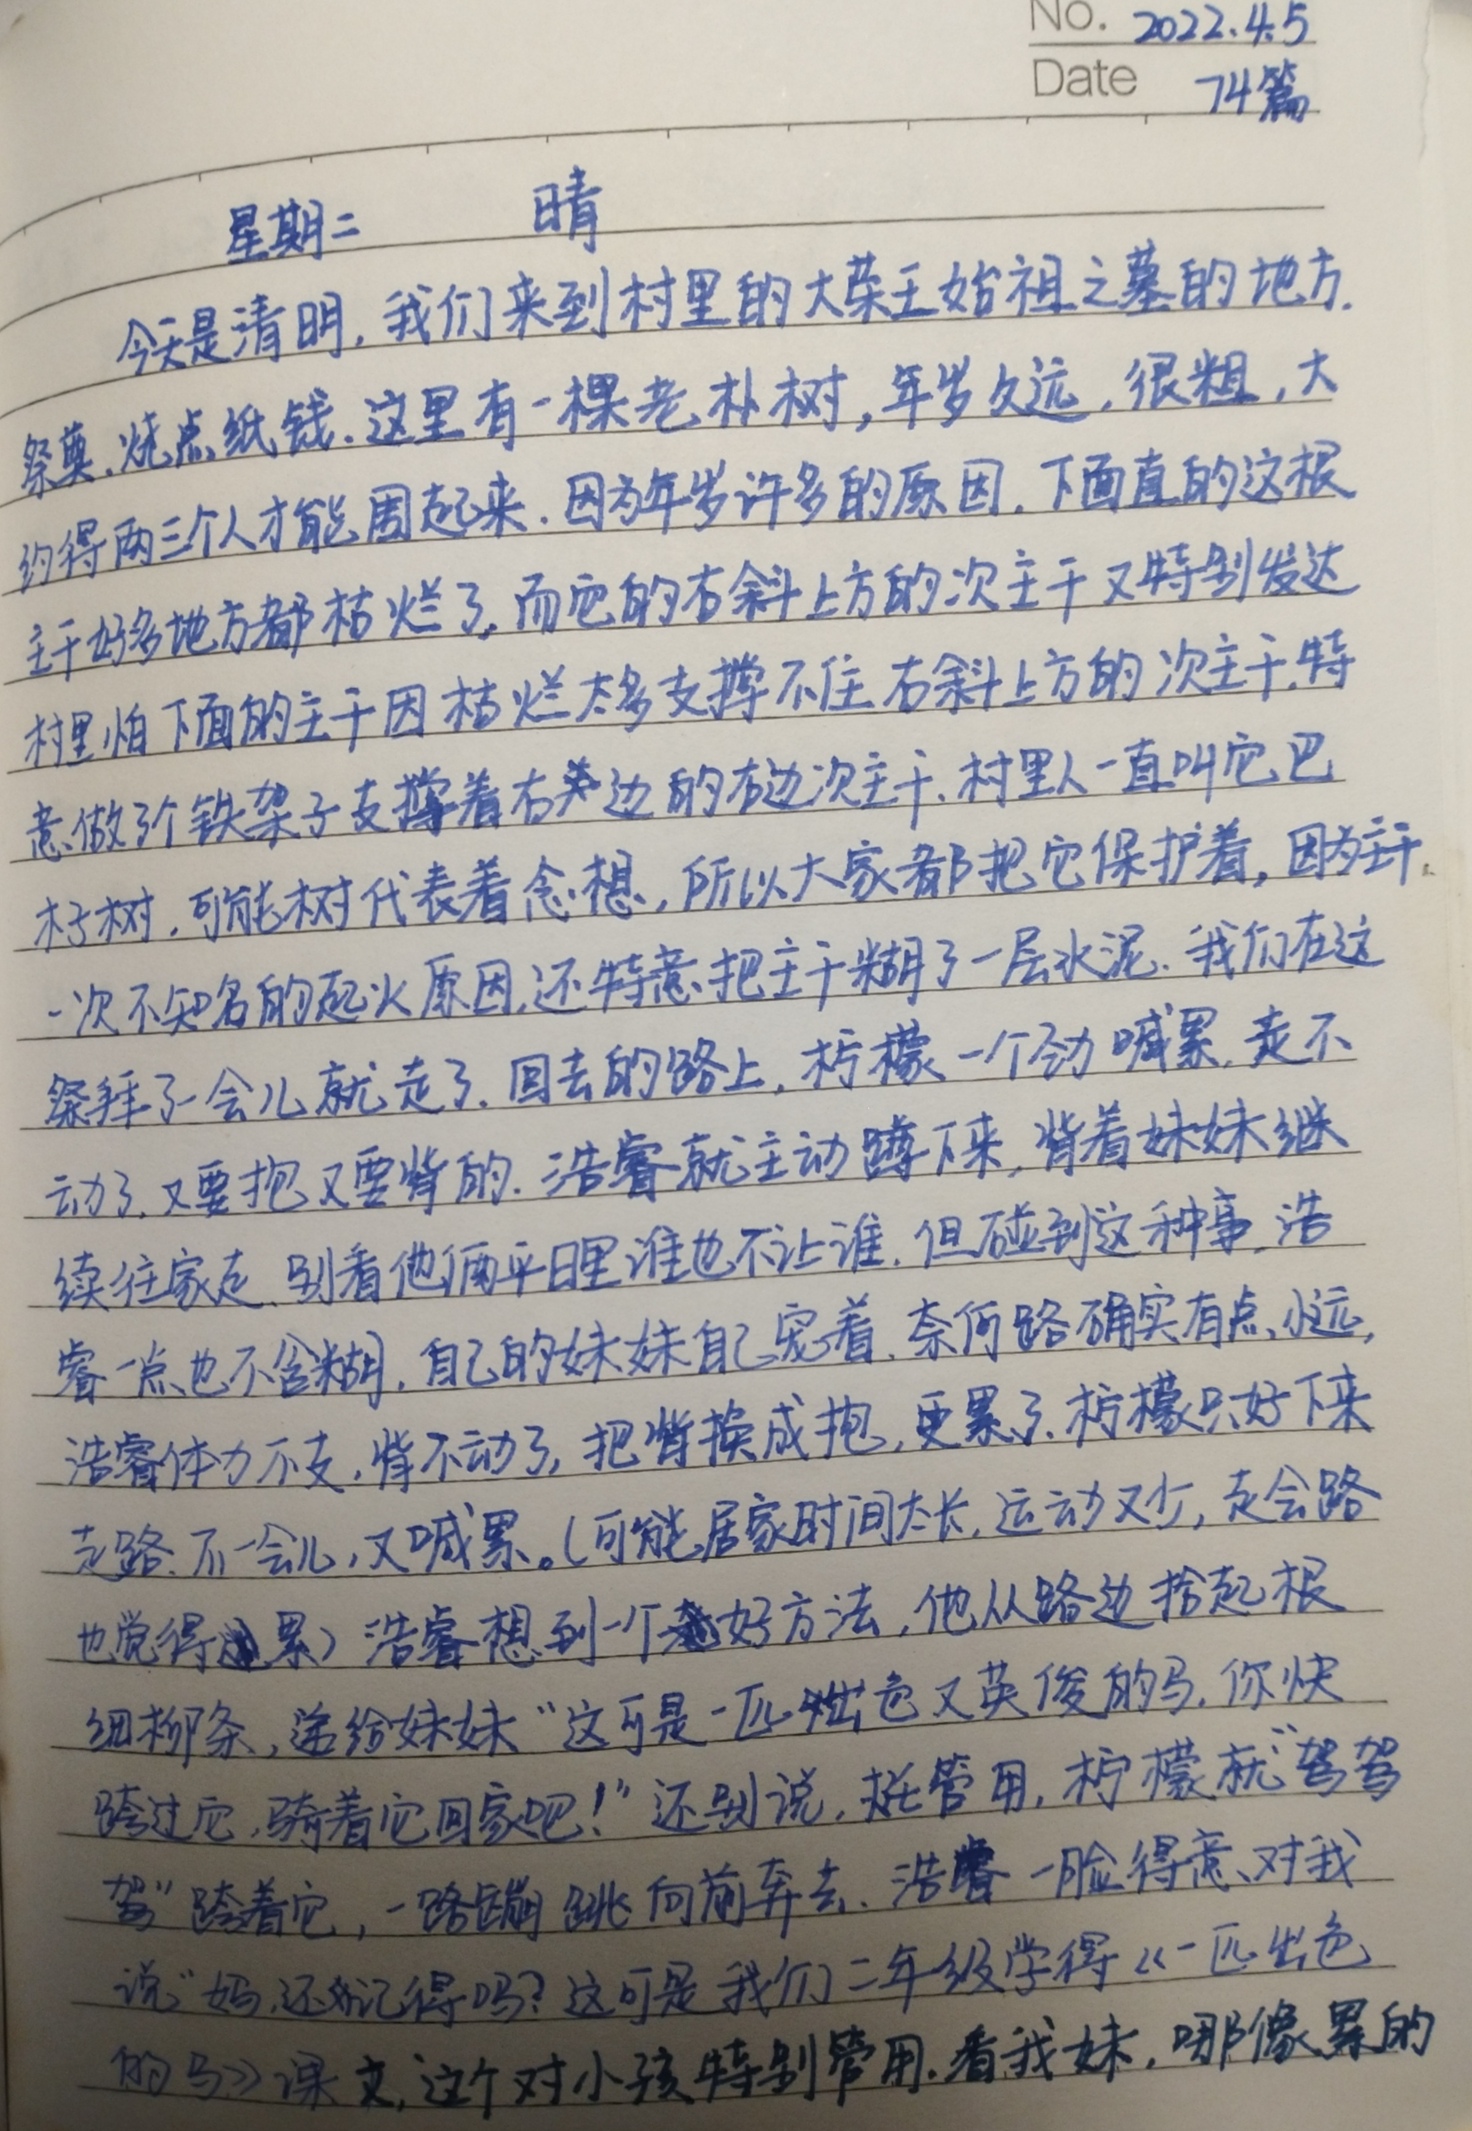 No. 2022.4.5
Date 74篇
星期二 晴
今天是清明，我们来到村里的大荣王始祖之墓的地方.
祭奠.烧点纸钱.这里有一棵老朴树，年岁久远，很粗，大
约得两三个人才能围起来.因为年岁许多的原因.下面直的这根
主干好多地方都枯烂了.而它的右斜上方的次主干又特别发达
村里怕下面的主干因枯烂太多支撑不住右斜上方的次主干.特
意做了个铁架子支撑着右边的右边次主干.村里人一直叫它巴
杍树.可能树代表着念想，所以大家都把它保护着.因为主干
一次不知名的起火原因.还特意把主干糊了一层水泥.我们在这
祭拜了一会儿就走了.回去的路上，柠檬一个劲喊累，走不
动了.又要抱又要背的.浩睿就主动蹲下来，背着妹妹继
续往家走.别看他俩平日里谁也不让谁.但碰到这种事.浩
睿一点也不含糊.自己的妹妹自己宠着.奈何路确实有点小远，
浩睿体力不支，背不动了，把背换成抱，更累了.柠檬只好下来
走路.不一会儿，又喊累。（可能居家时间太长.运动又少，走会路
也觉得累）浩睿想到一个好方法，他从路边拾起根
细柳条，递给妹妹“这可是一匹出色又英俊的马.你快
跨过它，骑着它回家吧！”还别说，挺管用，柠檬就“驾驾
驾”跨着它，一路蹦跳向前奔去.浩睿一脸得意、对我
说“妈.还记得吗？这可是我们二年级学得《一匹出色
的马》课文，这个对小孩特别管用.看我妹，哪像累的